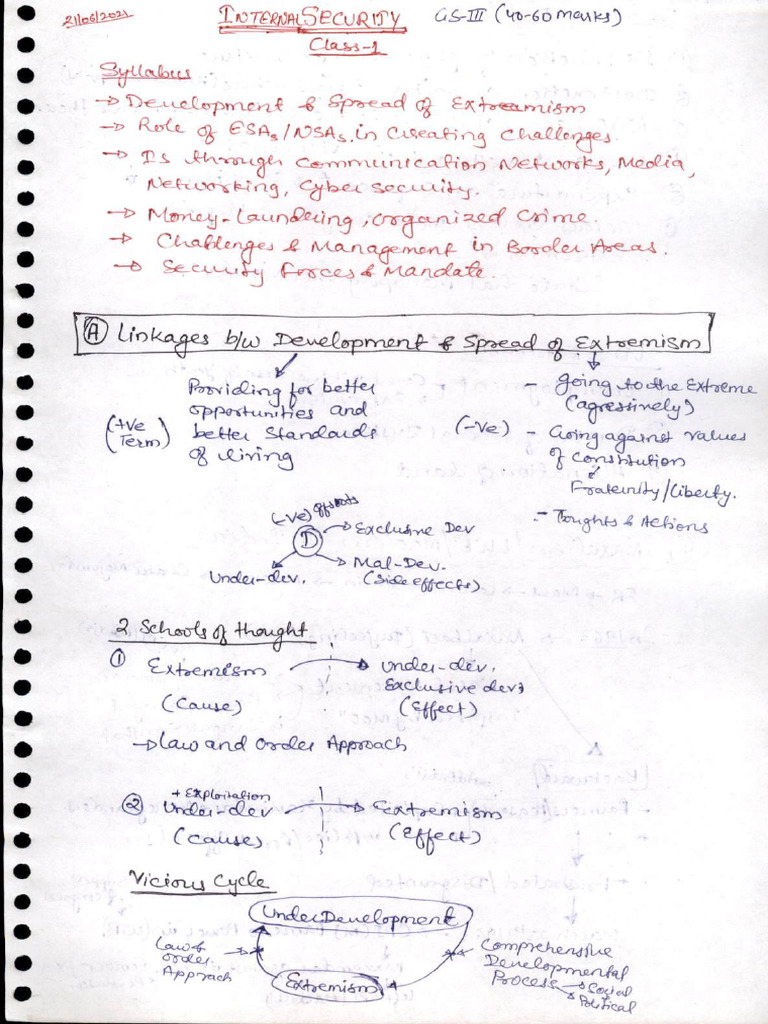 21/06/2021
INTERNAL SECURITY GS-III (40-60 marks)
Class-1
Syllabus
→ Development & Spread of Extremism
→ Role of ESAs/NSAs in Creating Challenges.
→ IS through Communication Networks, Media,
Networking, Cyber Security.
→ Money-Laundering, Organized Crime.
→ Challenges & Management in Border Areas.
→ Security Forces & Mandate.
(A) Linkages b/w Development & Spread of Extremism
(+ve Term)
Providing for better
opportunities and
better Standards
of living
(-ve)
- Going to the Extreme
(agressively)
- Going against values
of constitution
Fraternity/Liberty.
- Toughts & Actions
(-ve) offshoots
D
→ Exclusive Dev
→ Mal-Dev.
(Side effects)
Under-dev.
2 Schools of thought
① Extremism → Under-dev.
Exclusive devs
(Cause) (Effect)
→ Law and Order Approach
+ Exploitation
② Under-dev → Extremism
(Cause) (Effect)
Vicious Cycle
UnderDevelopment
Law &
Order
Approach
Extremism
Comprehensive
Developmental
Process → Social
→ Political